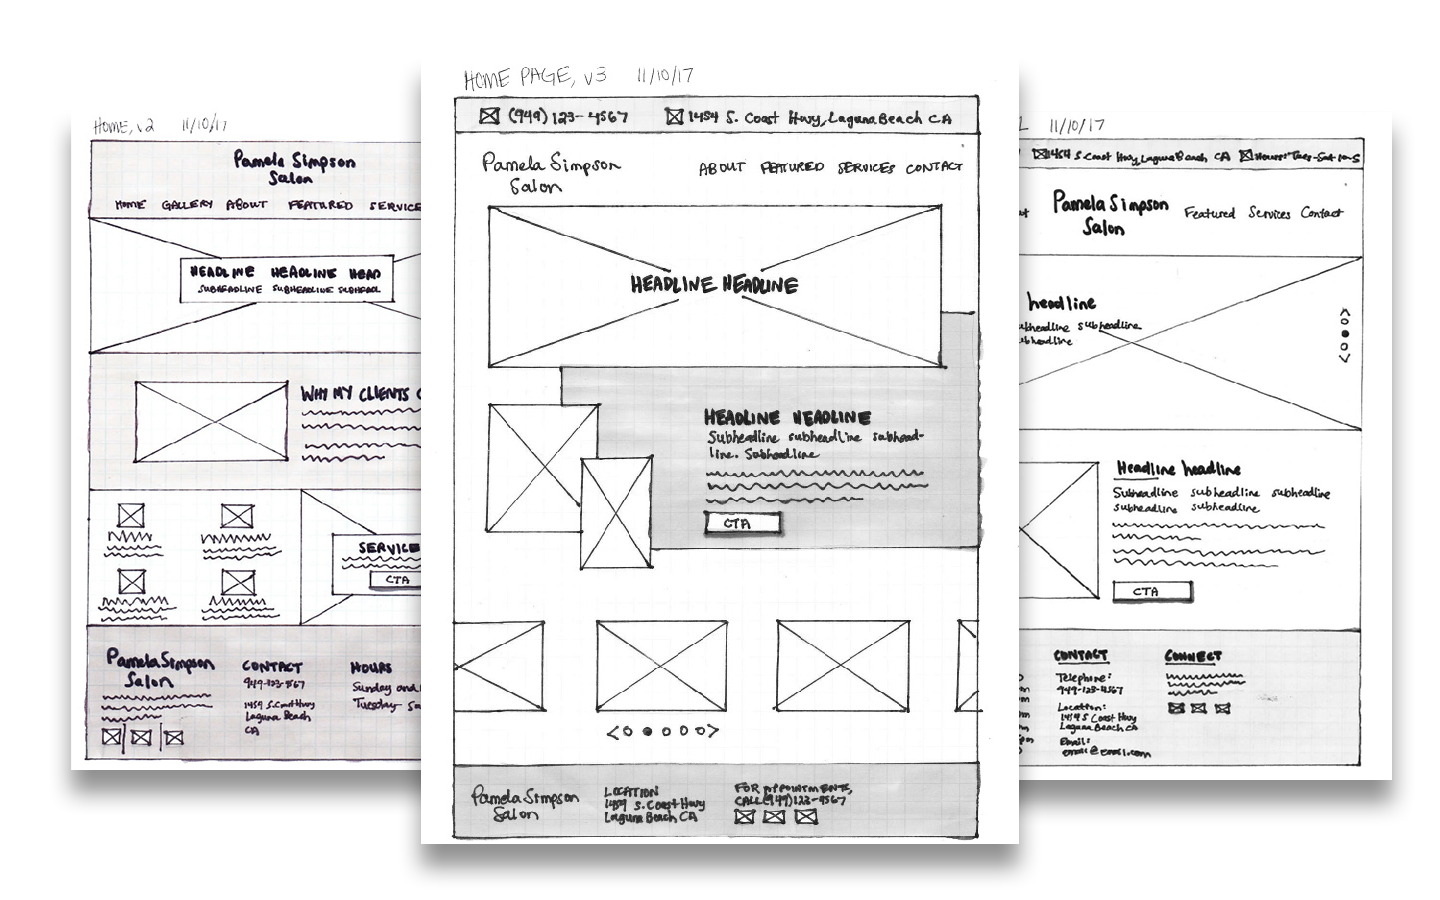 HOME, v2 11/10/17
Pamela Simpson
Salon
HOME GALLERY ABOUT FEATURED SERVICE
HEADLINE HEADLINE HEAD
SUBHEADLINE SUBHEADLINE SUBHEADL
WHY MY CLIENTS
SERVICE
CTA
Pamela Simpson
Salon
CONTACT
949-123-4567
1454 S. Coast Hwy
Laguna Beach
CA
HOURS
Sunday and
Tuesday - Sa
HOME PAGE, v3 11/10/17
(949) 123-4567 1454 S. Coast Hwy, Laguna Beach CA
Pamela Simpson
Salon
ABOUT FEATURED SERVICES CONTACT
HEADLINE HEADLINE
HEADLINE HEADLINE
Subheadline subheadline subhead-
line. Subheadline
CTA
< >
Pamela Simpson
Salon
LOCATION
1454 S. Coast Hwy
Laguna Beach CA
FOR APPOINTMENTS,
CALL (949) 123-4567
11/10/17
1454 S Coast Hwy, Laguna Beach CA Hours: Tues-Sat 10-5
Pamela Simpson
Salon
Featured Services Contact
headline
ubheadline subheadline
ubheadline
Headline headline
Subheadline subheadline subheadline
subheadline subheadline
CTA
CONTACT
Telephone:
949-123-4567
Location:
1454 S Coast Hwy
Laguna Beach CA
Email:
email@email.com
CONNECT